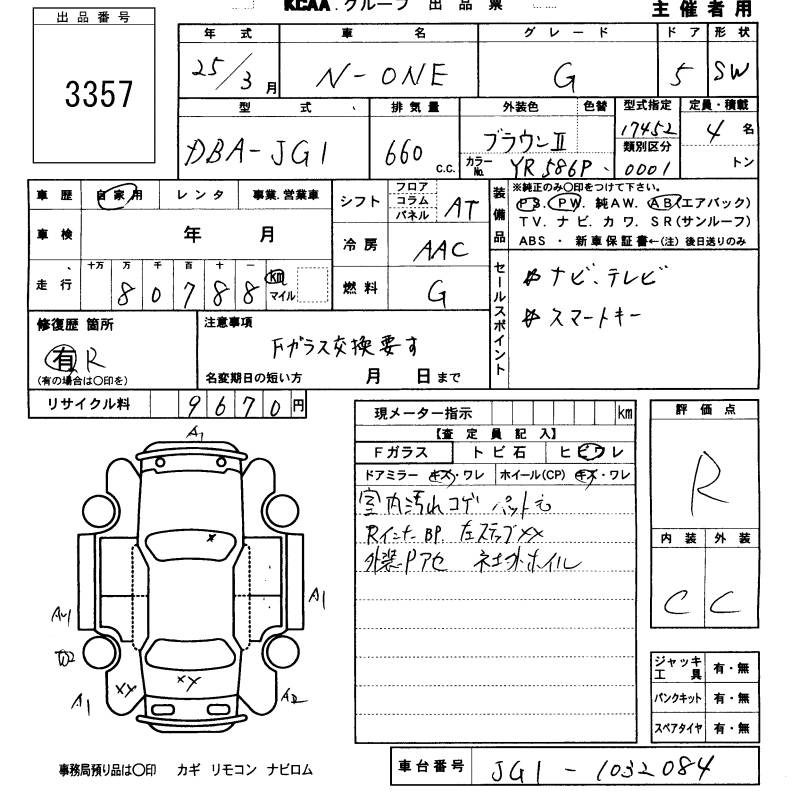 KCAA.グループ 出品票
主催者用
出品番号
3357
年式 車名 グレード ドア 形状
25/3月 N-ONE G 5 SW
型式 排気量 外装色 色替 型式指定 定員・積載
DBA-JG1 660 c.c. ブラウンII 17452 4名
カラーNo. YR586P 類別区分 0001 トン
車歴 自家用 レンタ 事業.営業車
車検 年 月
走行 十万 万 千 百 十 一
80788 km マイル
シフト フロア コラム パネル AT
冷房 AAC
燃料 G
装備品
※純正のみ○印をつけて下さい。
PS. PW. 純AW. AB(エアバック)
TV. ナビ. カワ. SR(サンルーフ)
ABS ・ 新車保証書←(注) 後日送りのみ
セールスポイント
ナビ、テレビ
スマートキー
修復歴 箇所
有 R
(有の場合は○印を)
注意事項
Fガラス交換要す
名変期日の短い方 月 日まで
リサイクル料 9670円
現メーター指示 km
【査定員記入】
Fガラス トビ石 ヒビワレ
ドアミラー キズ・ワレ ホイール(CP) キズ・ワレ
室内汚れコゲ
Rインナー BP. 左ステップXX
社外ホイル
評価点
R
内装 外装
C C
A1
A1
A1
A2
XX
XY
x
ジャッキ工具 有・無
パンクキット 有・無
スペアタイヤ 有・無
事務局預り品は○印 カギ リモコン ナビロム
車台番号 JG1-1032084